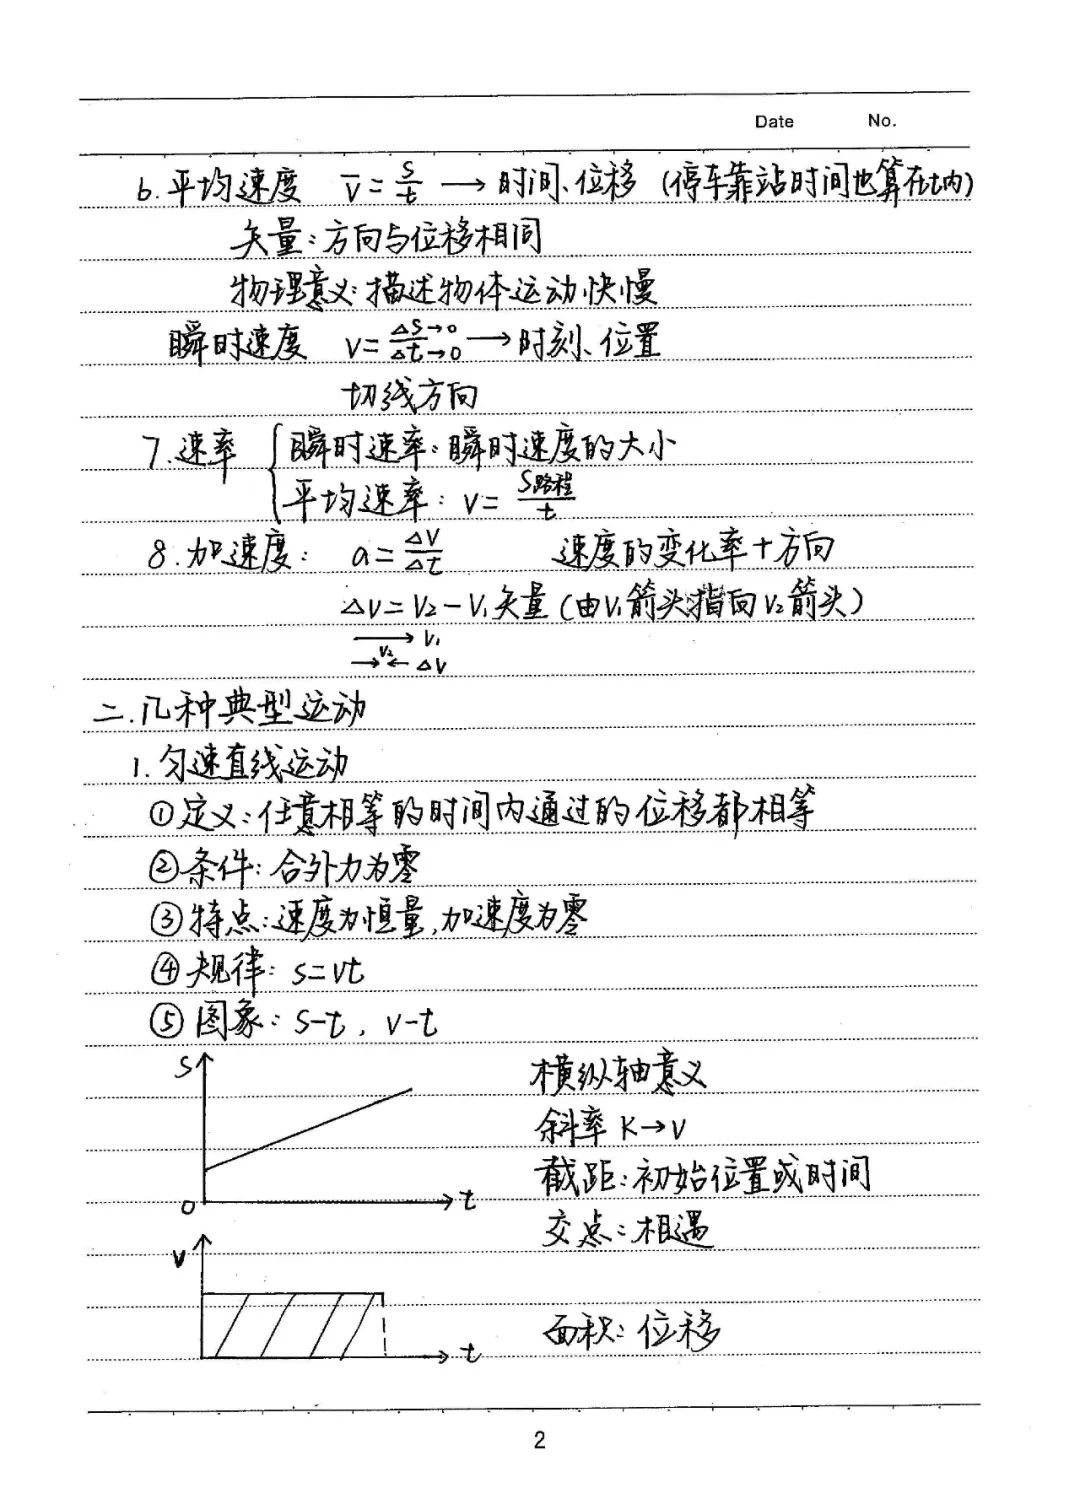 Date No.
6.平均速度 v̄=s/t → 时间、位移 (停车靠站时间也算在t内)
矢量:方向与位移相同
物理意义:描述物体运动快慢
瞬时速度 v=Δs→0/Δt→0 → 时刻、位置
切线方向
7.速率 { 瞬时速率:瞬时速度的大小
平均速率: v=s路程/t
8.加速度: a=Δv/Δt 速度的变化率+方向
Δv=v₂-v₁矢量(由v₁箭头指向v₂箭头)
→ v₁
v₂
→← Δv
二.几种典型运动
1.匀速直线运动
①定义:任意相等的时间内通过的位移都相等
②条件:合外力为零
③特点:速度为恒量,加速度为零
④规律: s=vt
⑤图象: s-t, v-t
s
横纵轴意义
斜率 K→v
截距:初始位置或时间
0 t
交点:相遇
v
面积:位移
t
2